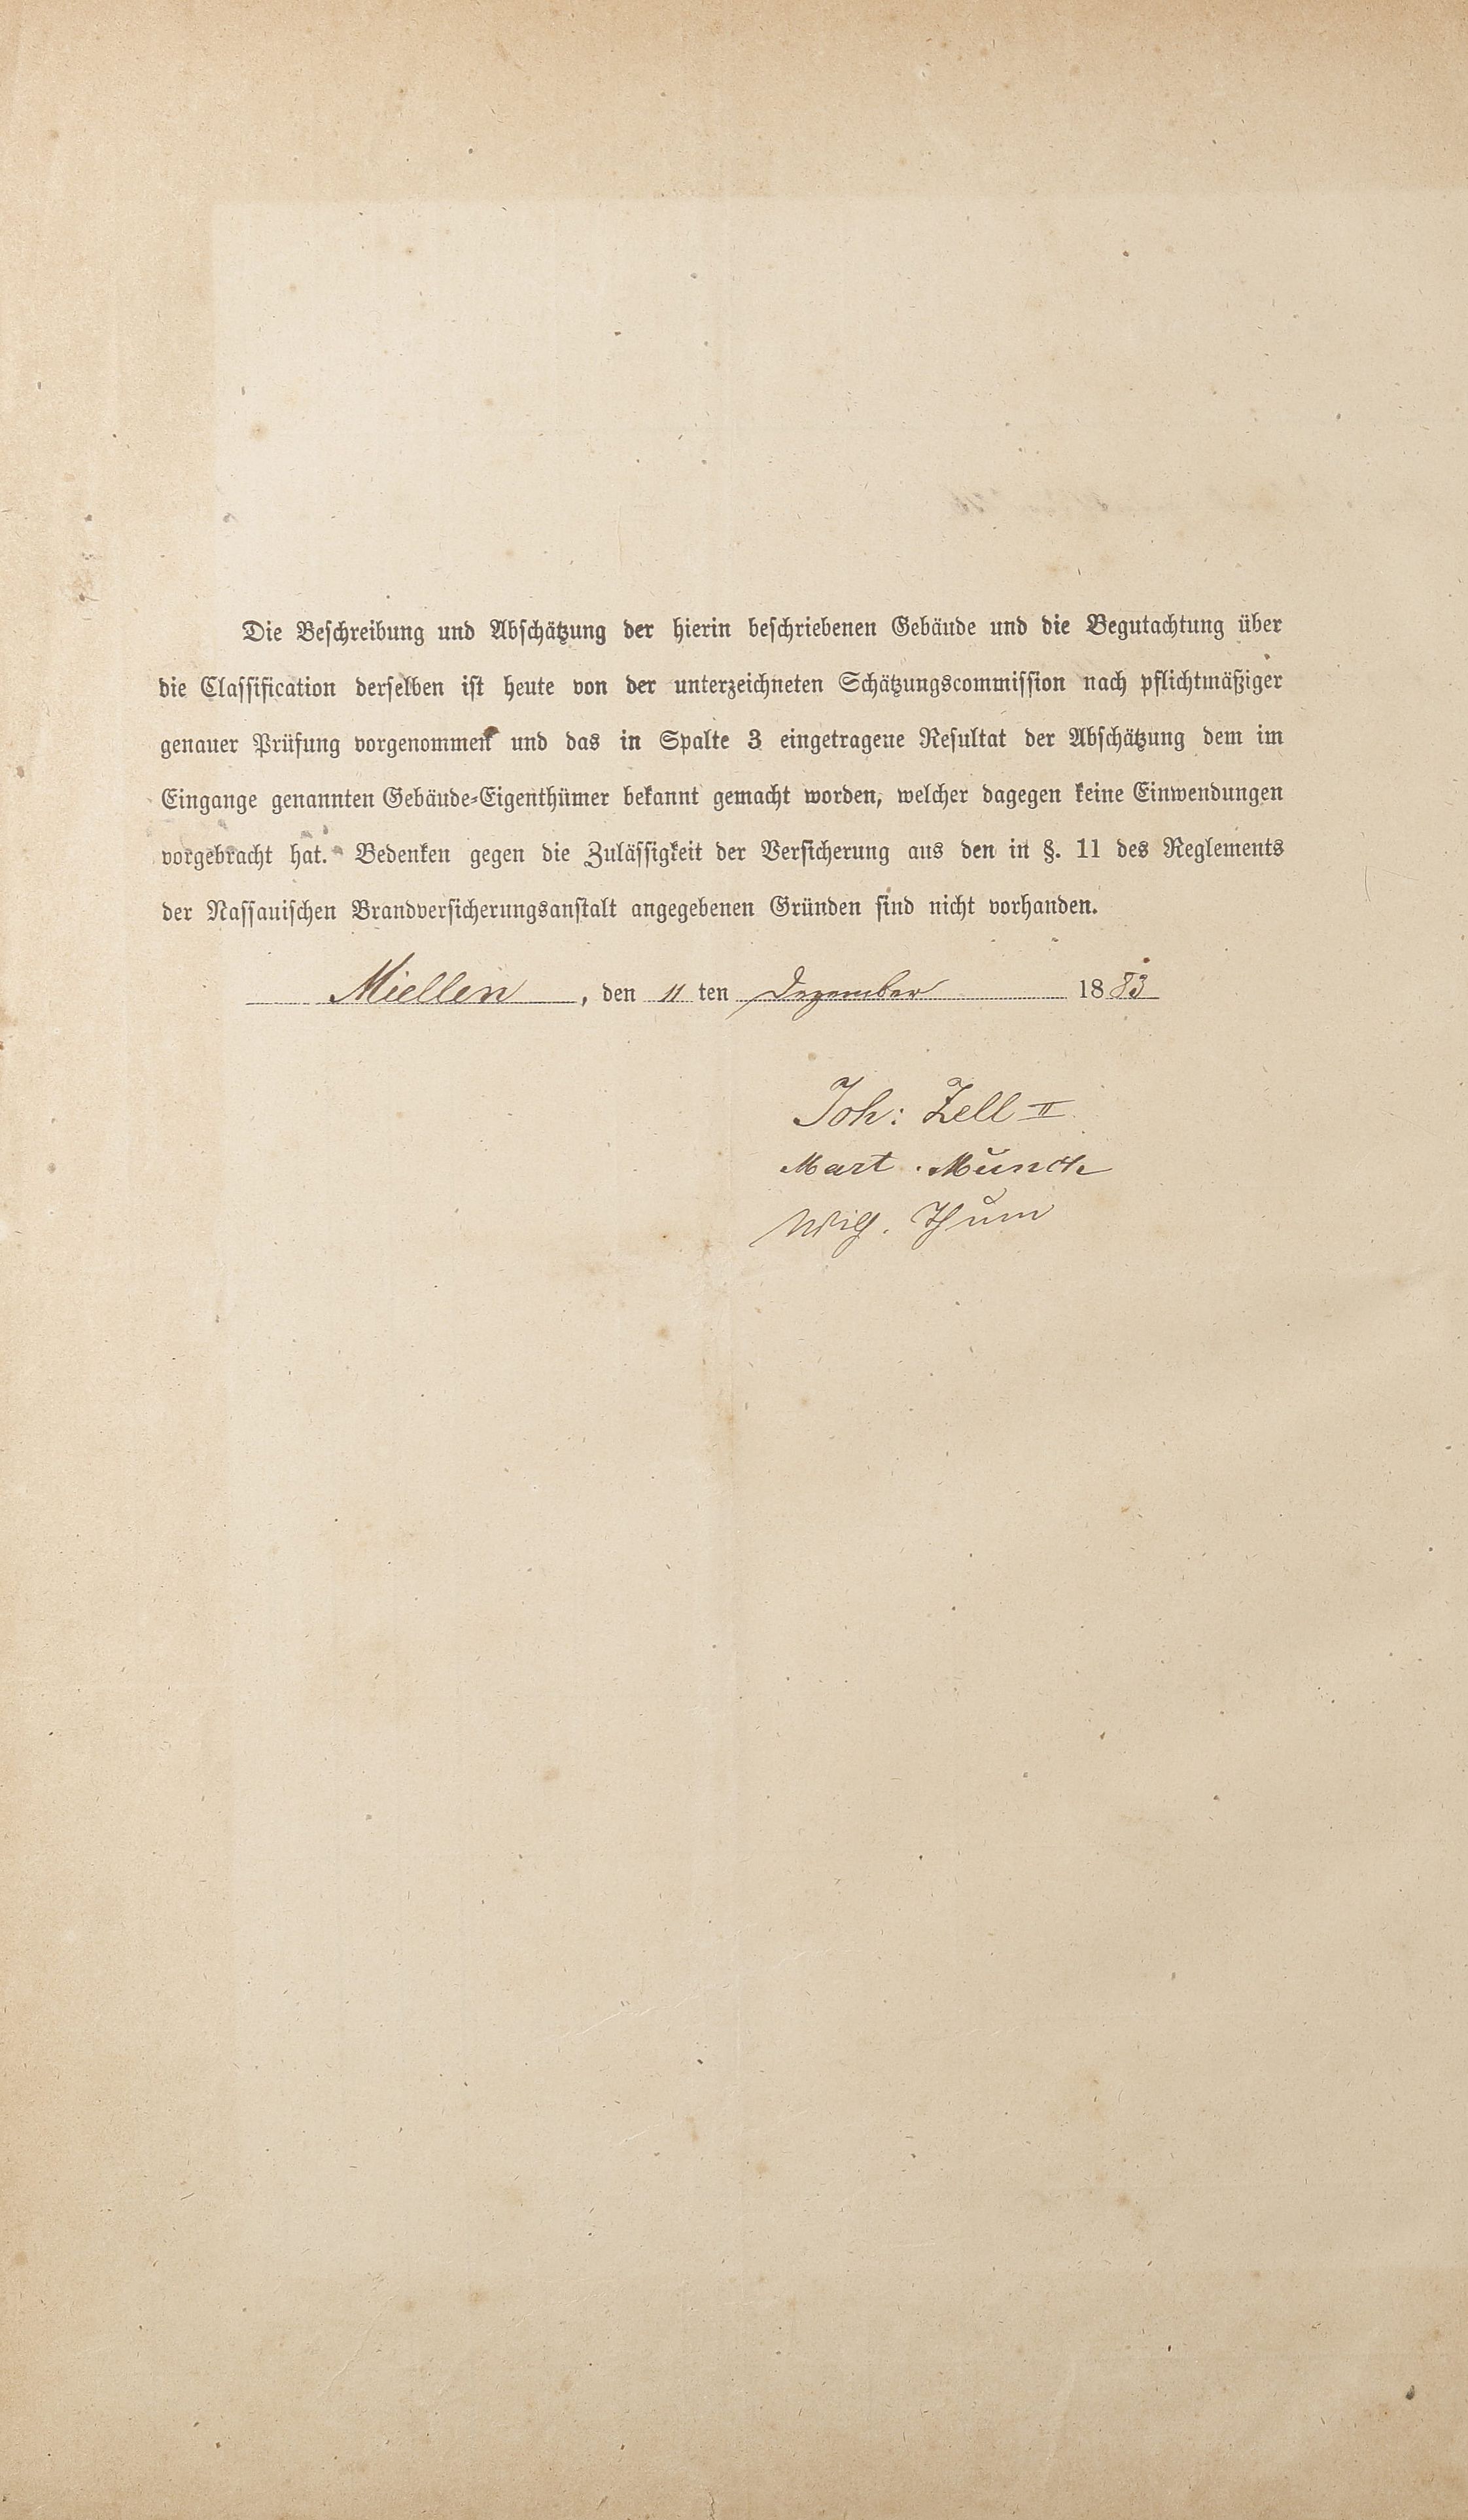 Die Beschreibung und Abschätzung der hierin beschriebenen Gebäude und die Begutachtung über
die Classification derselben ist heute von der unterzeichneten Schätzungscommission nach pflichtmäßiger
genauer Prüfung vorgenommen und das in Spalte 3 eingetragene Resultat der Abschätzung dem im
Eingange genannten Gebäude-Eigenthümer bekannt gemacht worden, welcher dagegen keine Einwendungen
vorgebracht hat. Bedenken gegen die Zulässigkeit der Versicherung aus den in §. 11 des Reglements
der Nassauischen Brandversicherungsanstalt angegebenen Gründen sind nicht vorhanden.
Miellen, den 11 ten Dezember 1883
Joh: Zell II
Mart. Münch
Wilh. Thum